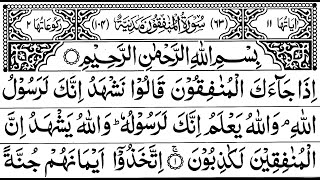 اٰیَاتُهَا ١١ (٦٣) سُوْرَةُ الْمُنٰفِقُوْنَ مَدَنِيَّةٌ (١٠٤) رُكُوْعَاتُهَا ٢
بِسْمِ اللهِ الرَّحْمٰنِ الرَّحِيْمِ
اِذَا جَآءَكَ الْمُنٰفِقُوْنَ قَالُوْا نَشْهَدُ اِنَّكَ لَرَسُوْلُ
اللهِ ۘ وَاللهُ يَعْلَمُ اِنَّكَ لَرَسُوْلُهٗ ؕ وَاللهُ يَشْهَدُ اِنَّ
الْمُنٰفِقِيْنَ لَكٰذِبُوْنَ ۚ اِتَّخَذُوْۤا اَيْمَانَهُمْ جُنَّةً